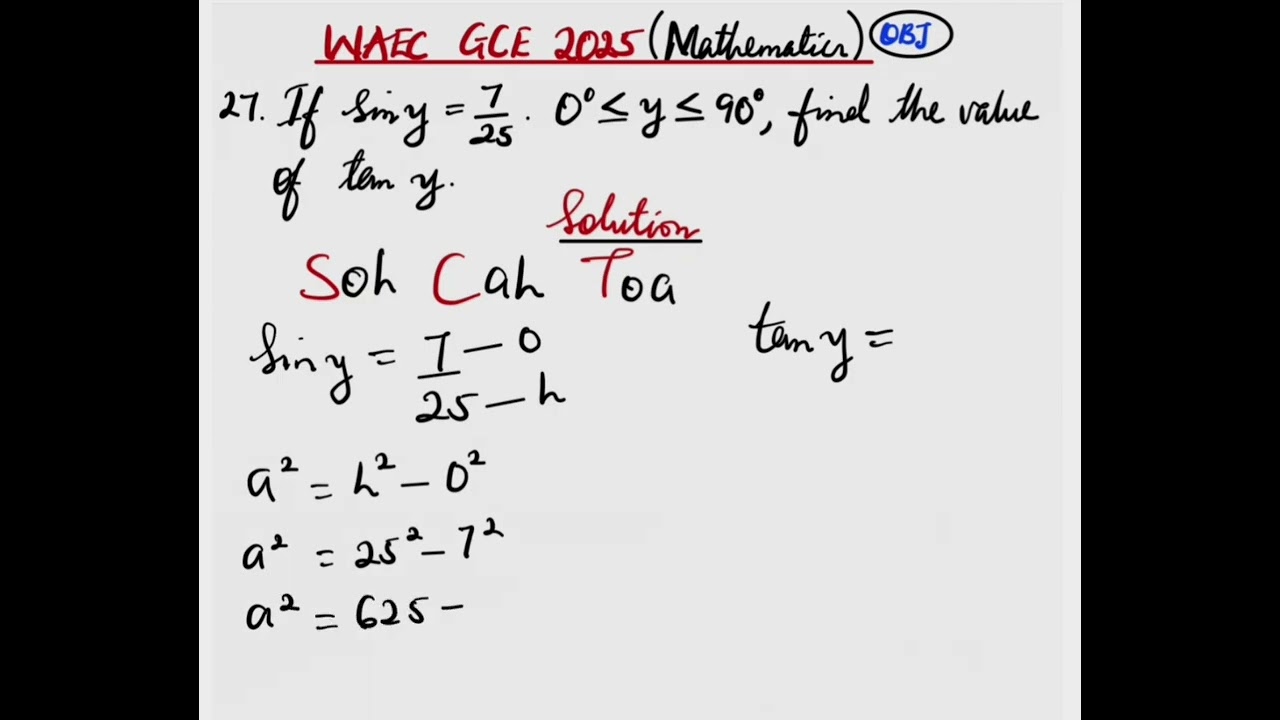 WAEC GCE 2025 (Mathematics) OBJ
27. If sin y = 7/25 . 0° ≤ y ≤ 90°, find the value
of tan y.
Solution
Soh Cah Toa
sin y = 7 — o
25 — h
tan y =
a² = h² — o²
a² = 25² — 7²
a² = 625 —